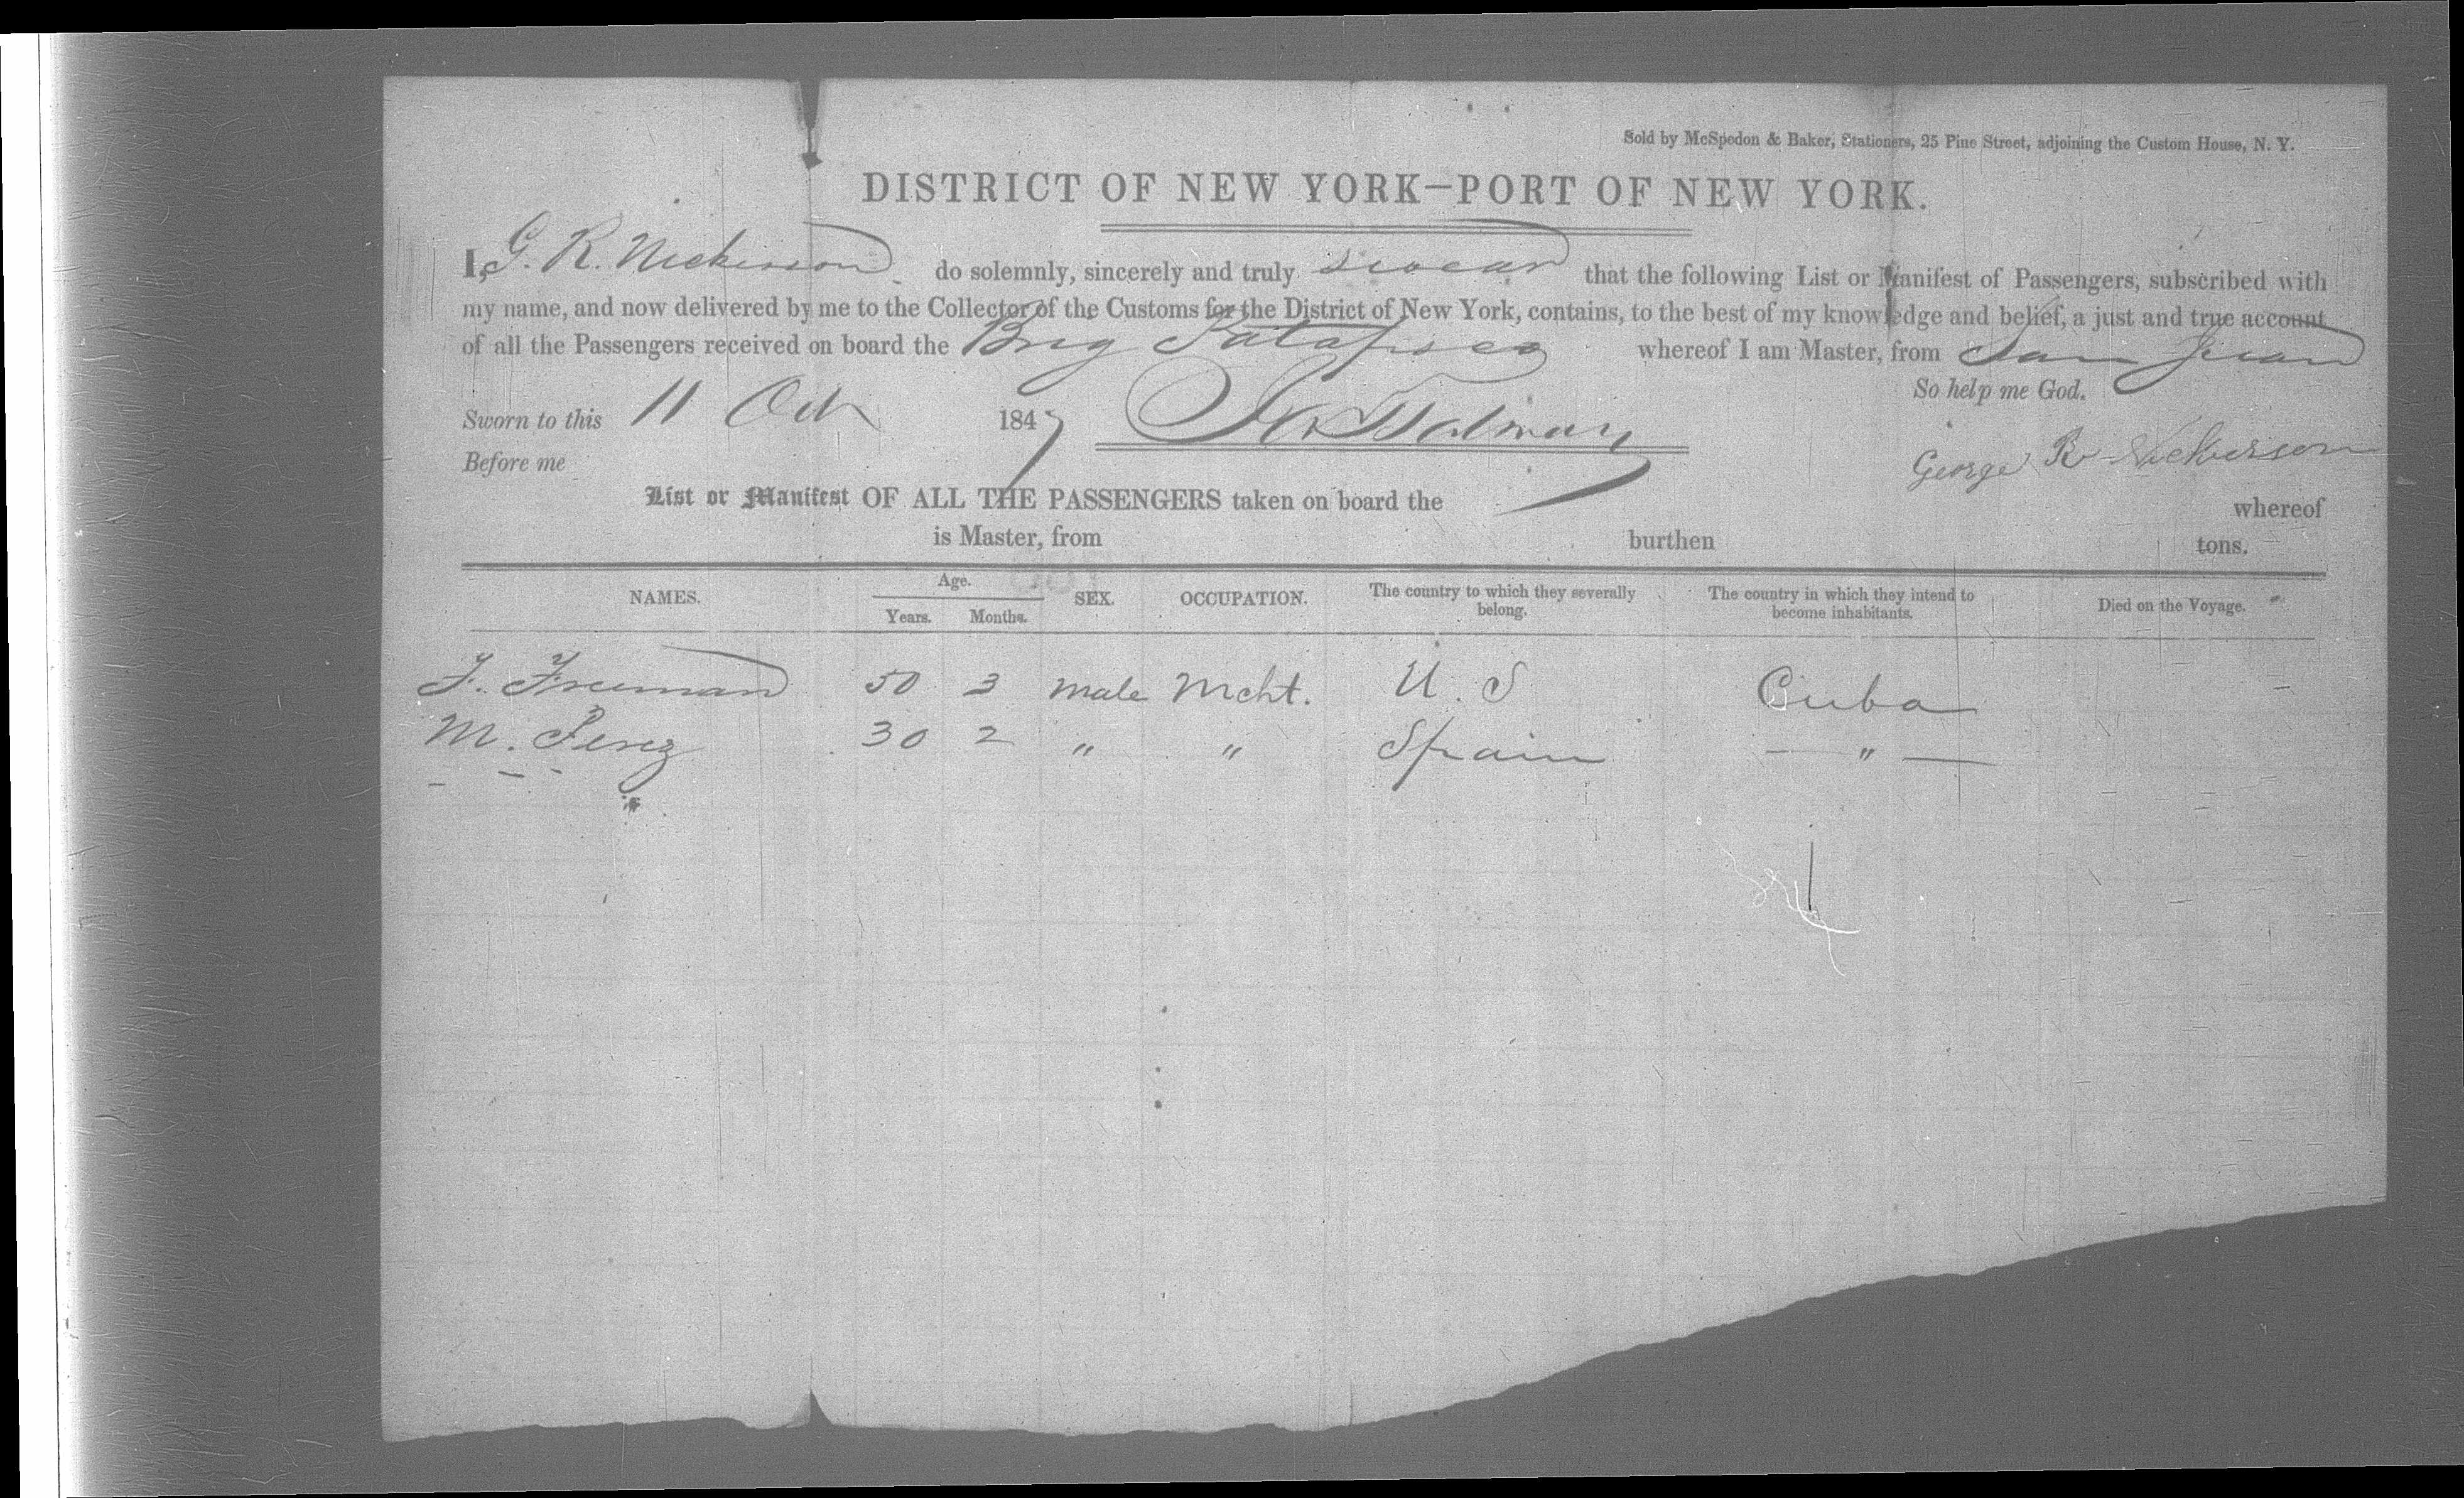 Sold by McSpedon & Baker, Stationers, 25 Pine Street, adjoining the Custom House, N. Y.
DISTRICT OF NEW YORK—PORT OF NEW YORK.
I, G. R. Nickerson do solemnly, sincerely and truly swear that the following List or Manifest of Passengers, subscribed with
my name, and now delivered by me to the Collector of the Customs for the District of New York, contains, to the best of my knowledge and belief, a just and true account
of all the Passengers received on board the Brig Patapsco whereof I am Master, from San Juan
So help me God.
Sworn to this 11 Oct 1847
Before me
George R Nickerson
List or Manifest OF ALL THE PASSENGERS taken on board the whereof
is Master, from burthen tons.
NAMES. Age. Years. Months. SEX. OCCUPATION. The country to which they severally belong. The country in which they intend to become inhabitants. Died on the Voyage.
F. Freeman 50 3 male Mcht. U. S Cuba
M. Perez 30 2 " " Spain — " —